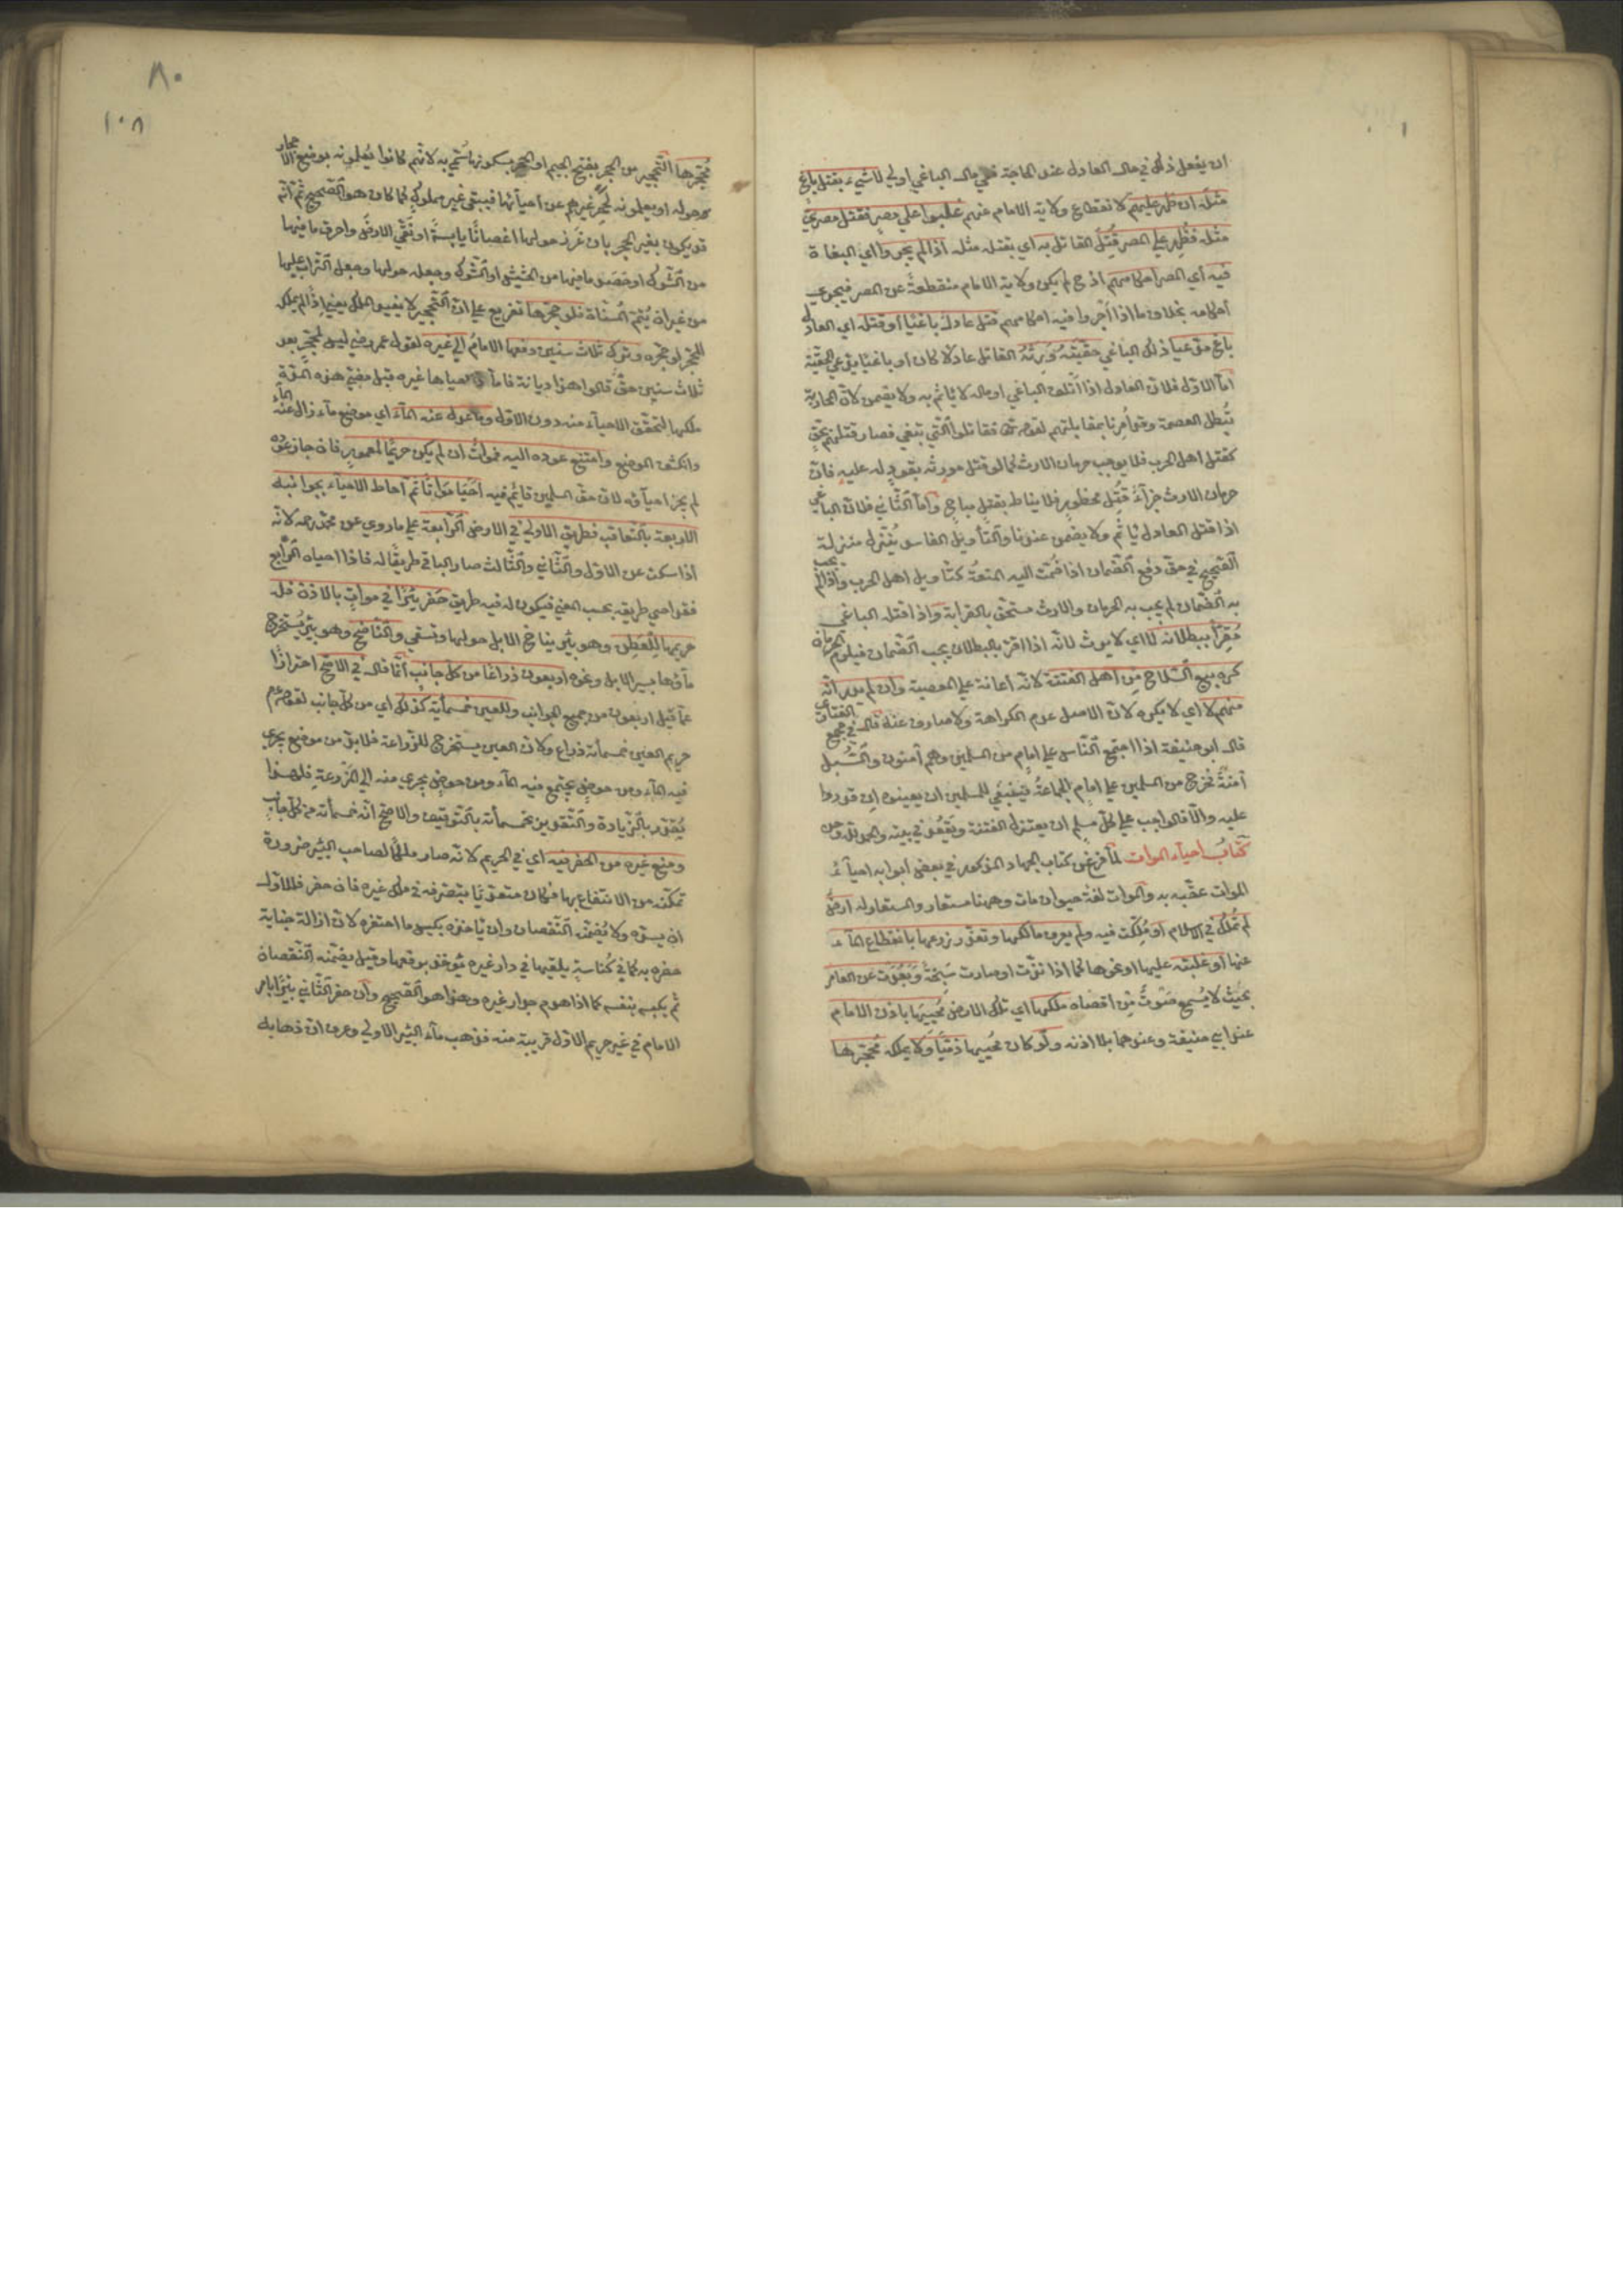 ان يفعل ذلك في مال العادل عند الحاجة ففي مال الباغي اولى لا شيء بقتل باغ
مثله ان ظهر عليهم لانقطاع ولاية الامام عنهم غلبوا على مصر فقتل مصري
مثله فظهر على المصر قتل القاتل به اي بقتله مثله اذا لم يجر وا اي البغاة
فيه اي المصر احكامهم اذ ح لم يكن ولاية الامام منقطعة عن المصر فيجري
احكامه بخلاف ما اذا أجروا فيه احكامهم قتل عادل باغيا او قتله اي العادل
باغ مدعيا ذلك الباغي حقيته ورثه القاتل عادلا كان او باغيا يدعي الحقية
اما الاول فلان العادل اذا أتلف الباغي او ماله لا يأثم به ولا يضمن لان المحاربة
تبطل العصمة وقد أمرنا بمقاتلتهم لقوله تع فقاتلوا التي تبغي فصار قتلهم بحق
كقتل اهل الحرب فلا يوجب حرمان الارث كما لو قتل مورثه بقود له عليه فان
حرمان الارث جزاء قتل محظور فلا يناط بقتل مباح واما الثاني فلان الباغي
اذا قتل العادل يأثم ولا يضمن عندنا والتأويل الفاسد ينزل منزلة
الصحيح في حق دفع الضمان اذا ضمت اليه المنعة كتأويل اهل الحرب واذا لم يجب
به الضمان لم يجب به الحرمان والارث مستحق بالقرابة واذا قتله الباغي
مقرا ببطلانه لا اي لا يرث لانه اذا اقر بالبطلان يجب الضمان فيلزم الحرمان
كره بيع السلاح من اهل الفتنة لانه اعانة على المعصية وان لم يدر انه
منهم لا اي لا يكره لان الاصل عدم الكراهة ولا صارف عنه قال في مجمع الفتاوى
قال ابو حنيفة اذا اجتمع الناس على امام من المسلمين وهم آمنون والسبل
آمنة فخرج من المسلمين على امام الجماعة فينبغي للمسلمين ان يعينوه ان قدروا
عليه والا فالواجب على كل مسلم ان يعتزل الفتنة ويقعد في بيته
كتاب احياء الموات لما فرغ عن كتاب الجهاد المذكور في بعض ابوابه احياء
الموات عقبه به والموات لغة حيوان مات وههنا مستعار والمستعار له ارض
لم تملك في الاسلام او ملكت فيه ولم يعرف مالكها وتعذر زرعها بانقطاع الماء
عنها او غلبته عليها او نحوها كما اذا نزت او صارت سبخة وبعدت عن العامر
بحيث لا يسمع صوت من اقصاه ملكها اي تلك الارض محييها باذن الامام
عند ابي حنيفة وعندهما بلا اذنه ولو كان محييها ذميا ولا يملكه محجرها
٨٠
١٠٨
محجرها التحجير من الحجر بفتح الجيم او الحجر بسكونها سمي به لانهم كانوا يعلمونه بوضع الاحجار
حوله او يعلمونه لحجر غيرهم عن احيائها فيبقى غير مملوك كما كان هو الصحيح ثم انه
قد يكون بغير الحجر بان غرز حولها اغصانا يابسة او نقى الارض واحرق ما فيها
من الشوك او خضد ما فيها من الحشيش او الشوك وجعله حولها وجعل التراب عليها
من غير ان يتم المسناة فلو حجرها تفريع على ان التحجير لا يفيد الملك يعني اذا لم يملك
المحجر لو حجره وترك ثلاث سنين دفعها الامام الى غيره لقول عمر رضه ليس لمحتجر بعد
ثلاث سنين حق قالوا هذا ديانة فاما احياها غيره قبل مضي هذه المدة
ملكها لتحقق الاحياء منه دون الاول وما عدل عنه الماء اي موضع ماء زال عنه الماء
وانكشف الموضع وامتنع عوده اليه فموات ان لم يكن حريما لمعمور فان جاز عوده
لم يجز احياؤه لان حق المسلمين قائم فيه أحيا مواتا ثم أحاط الاحياء بجوانبه
الاربعة بالتعاقب فطريق الاول في الارض الرابعة على ما روي عن محمد رحمه لانه
اذا سكت عن الاول والثاني والثالث صار الباقي طريقا له فاذا احياه الرابع
فقد احيى طريقه بحسب المعنى فيكون له فيه طريق حفر بئرا في موات بالاذن فله
حريمها للعطن وهو بئر يناخ الابل حولها وتسقى والناضح وهو بئر يستخرج
ماؤها بسير الابل ونحوه اربعون ذراعا من كل جانب انما قال في الاصح احترازا
عما قيل اربعون من جميع الجوانب وللعين خمسمائة كذلك اي من كل جانب لقوله عم
حريم العين خمسمأئة ذراع ولان العين يستخرج للزراعة فلا بد من موضع يجري
فيه الماء ومن حوض يجتمع فيه الماء ومن موضع يجري منه الى المزرعة فلهذا
يقدر بالزيادة والتقدير بخمسمائة بالتوقيف والاصح انه خمسمائة من كل جانب
ومنع غيره من الحفر فيه اي في الحريم لانه صار ملكا لصاحب البئر ضرورة
تمكنه من الانتفاع بها فكان متعديا بتصرفه في ملك غيره فان حفر فللاول
ان يسده ولا يضمنه النقصان وان يأخذه بكبس ما احتفره لان ازالة جناية
حفره به كما في كناسة يلقيها في دار غيره يؤخذ برفعها وقيل يضمنه النقصان
ثم يكبسه بنفسه كما اذا هدم جدار غيره وهذا هو الصحيح وان حفر الثاني بئرا بامر
الامام في غير حريم الاول قريبة منه فذهب ماء البئر الاولى وعرف ان ذهابه